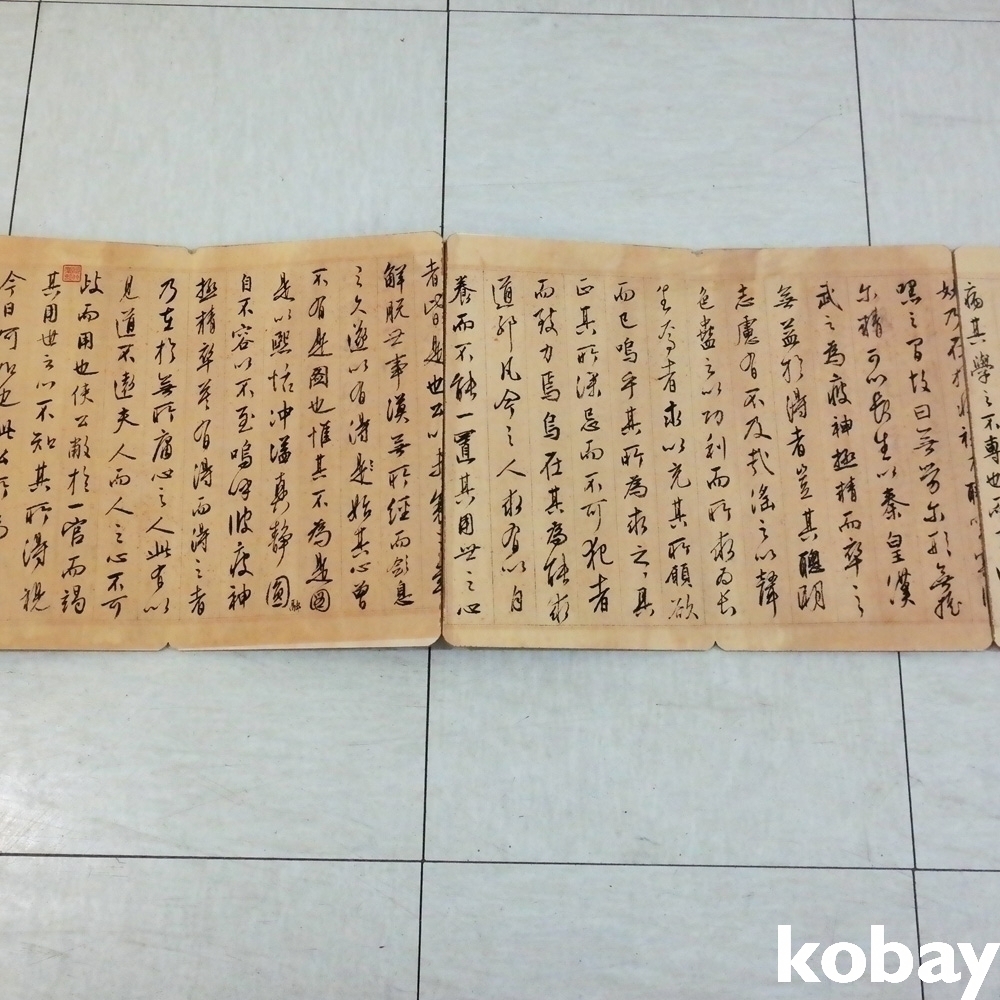 痛其學之不專也而
妙乃在
嘿之間故曰無勞尔形無搖
尔精可以長生以秦皇漢
武之為疲神極精而卒之
無益於得者豈其聰明
志慮有不及哉滛之以聲
色蠱之以功利而所求为長
生焉者求以充其所願欲
而已嗚乎其所為求之具
正其所深忌而不可犯者
而致力焉烏在其為能求
道耶凡今之人求有以自
養而不能一置其用世之心
者皆是也公以
解脫世事漠無所經而斂息
之久遂以有得是始其心曾
不有是圖也惟其不為是圖
是以熙恬冲瀜真靜圓融
自不容以不至嗚呼彼疲神
極精卒莫有得而得之者
乃在於無所庸心之人此有以
見道不遠夫人而人之心不可
歧而用也使公敝於一官而竭
其用世之心不知其所得視
今日何如也此公所
kobay